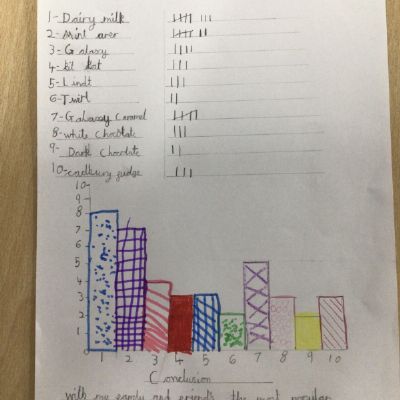 1-Dairy milk
2-Mint aero
3-Galaxy
4-kit kat
5-Lindt
6-Twirl
7-Galaxy Caramel
8-white chocolate
9- Dark chocolate
10-cadbury fudge
10
9
8
7
6
5
4
3
2
1
0
1 2 3 4 5 6 7 8 9 10
Conclusion
with my family and friends the most popular